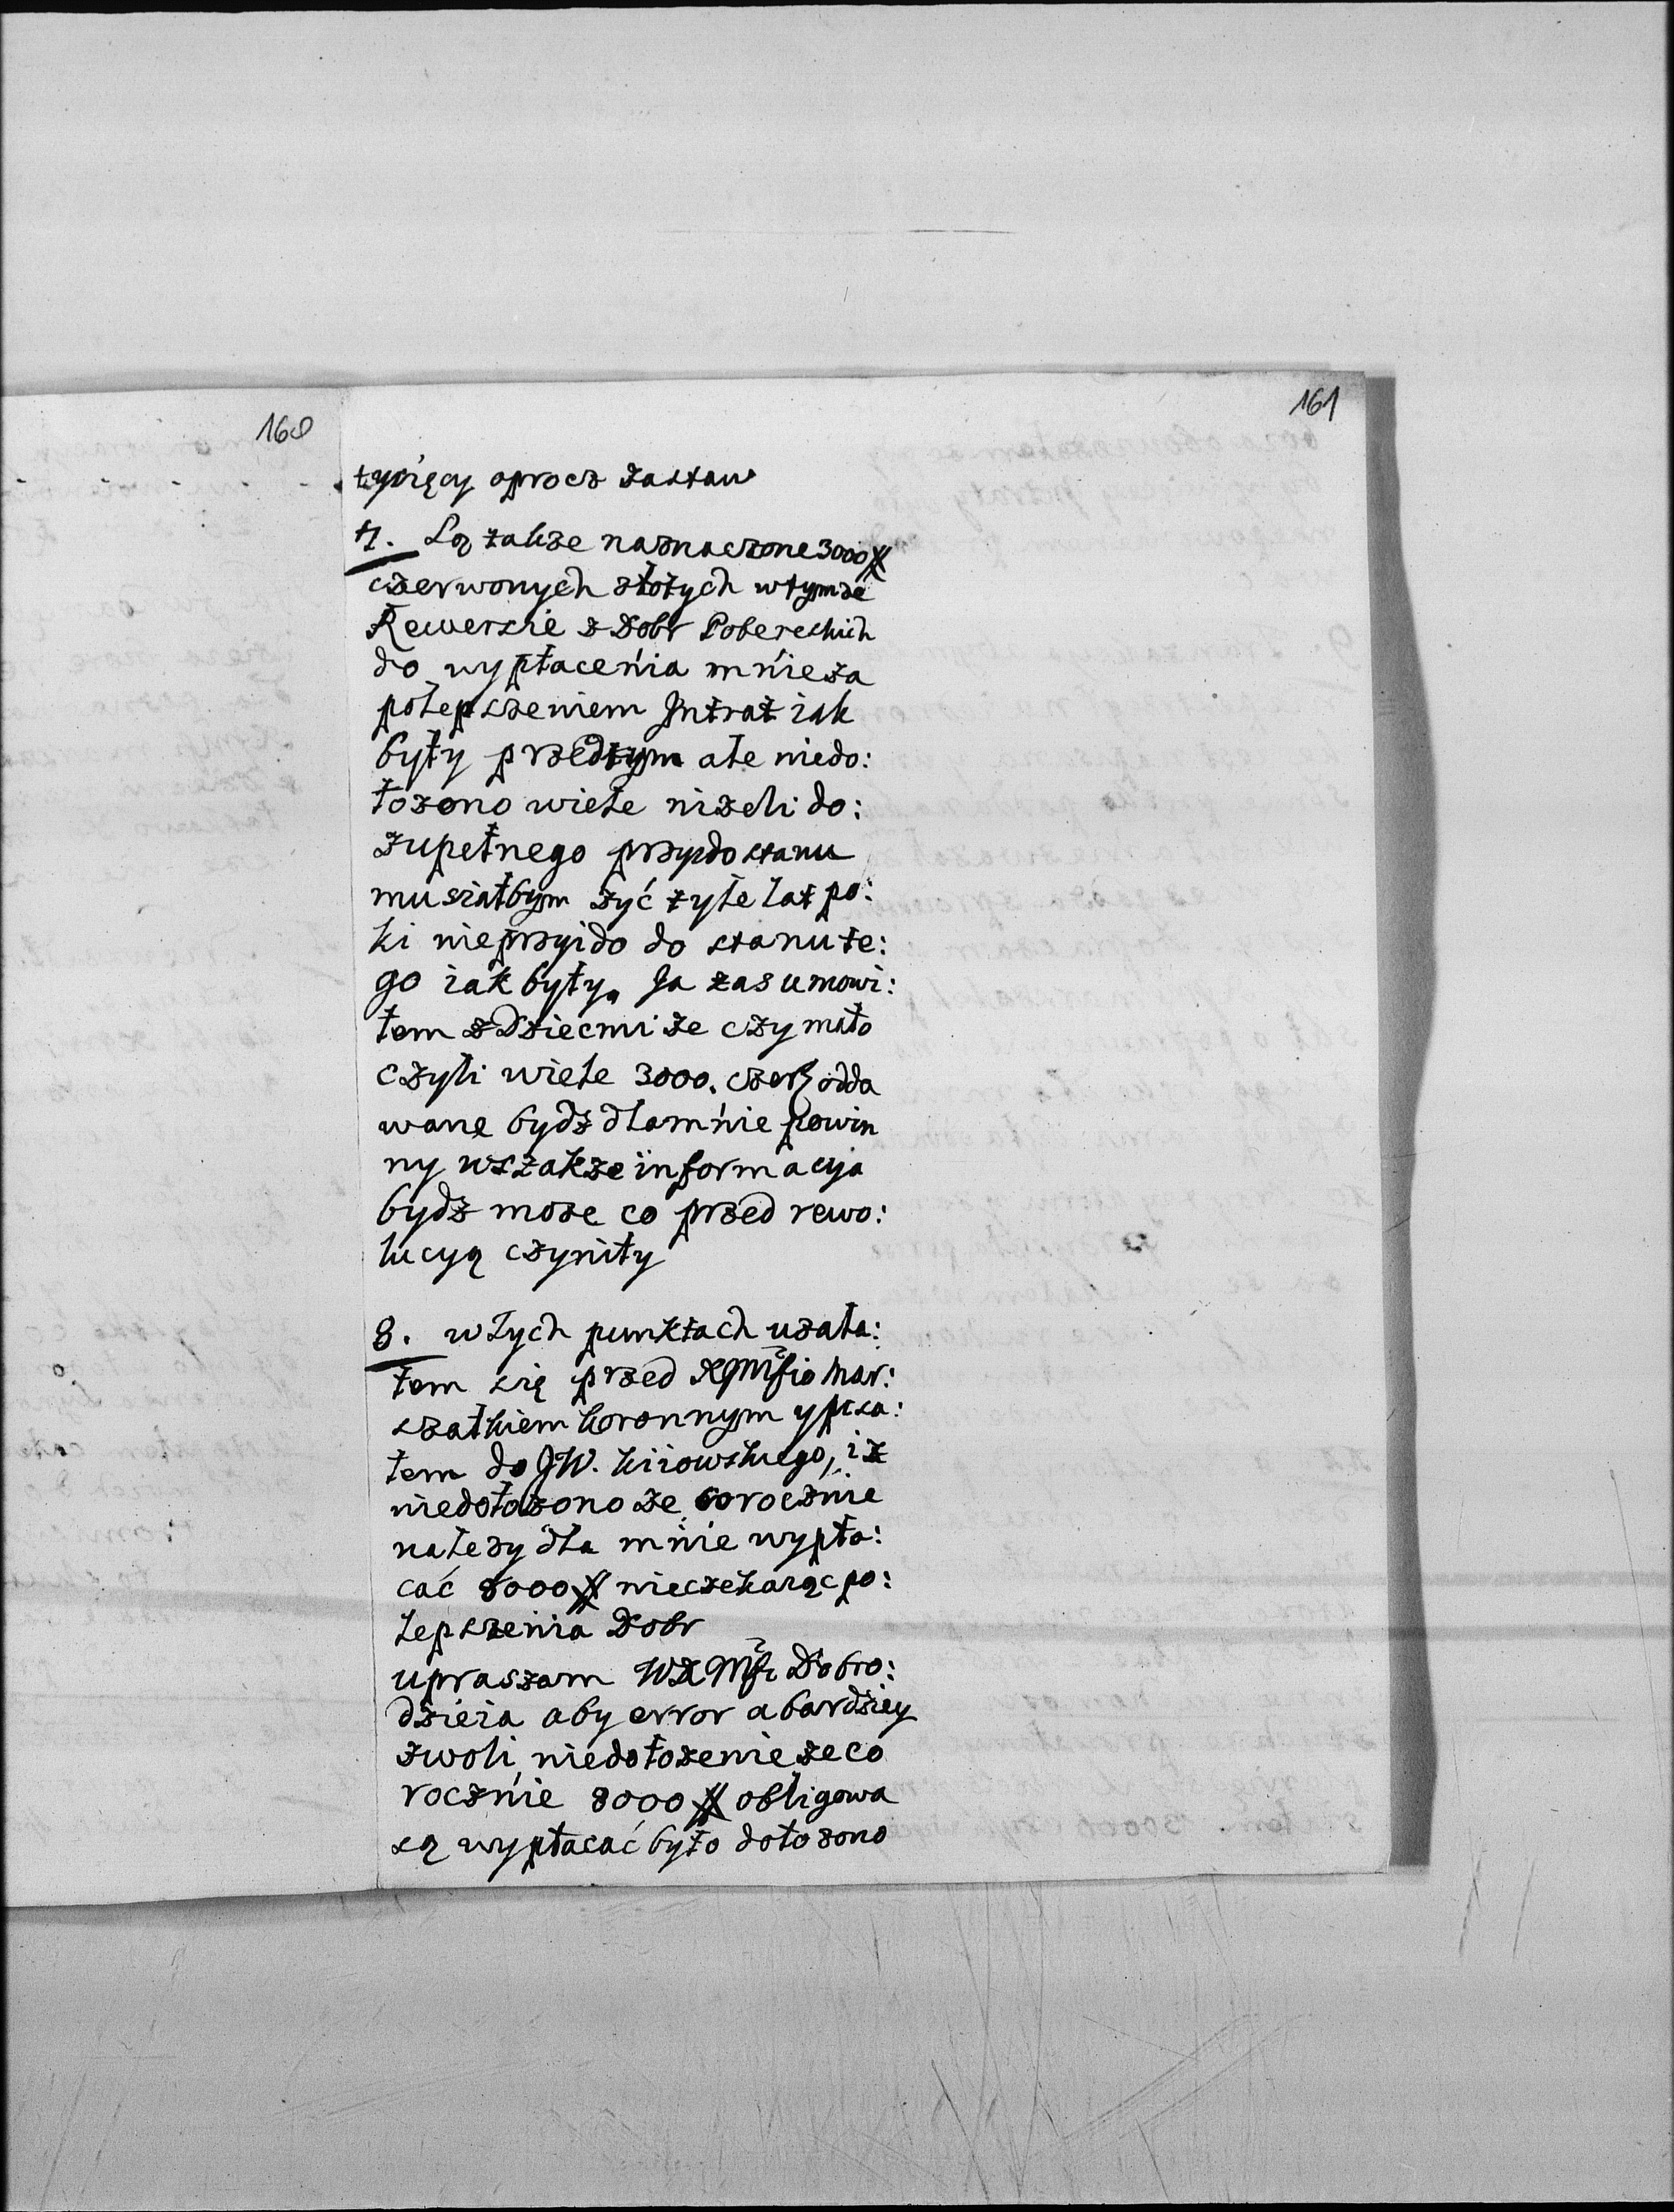 160
161
tysięcy oprocz zastaw
7. Są także naznaczone 3000 #
czerwonych złotych w tymże
Rewersie z Dobr Pobereskich
do wypłacenia mnie za
polepszeniem Jntrat iak
były przedtym ale niedo:
łożono wiele niżeli do:
zupełnego przyido stanu
musiałbym żyć tyle lat po:
ki nieprzyido do stanu te:
go iak były. Ja zas umowi:
łem z Dziecmi że czy mało
czyli wiele 3000. czerz odda
wane bydz dla mnie powin
ny wszakże informacyja
bydz może co przed rewo:
lucyą czyniły
8. w tych punktach użala:
łem się przed Mar:
szałkiem koronnym y pisa:
łem do JW. kiiowskiego, iż
niedołożono że corocznie
należy dla mnie wypła:
cać 8000 # nieczekaiąc po:
lepszenia Dobr
upraszam Dobro:
dzieia aby error a bardziey
zwoli niedołożenie że co
rocznie 8000 # obligowa
są wypłacać było dołożono